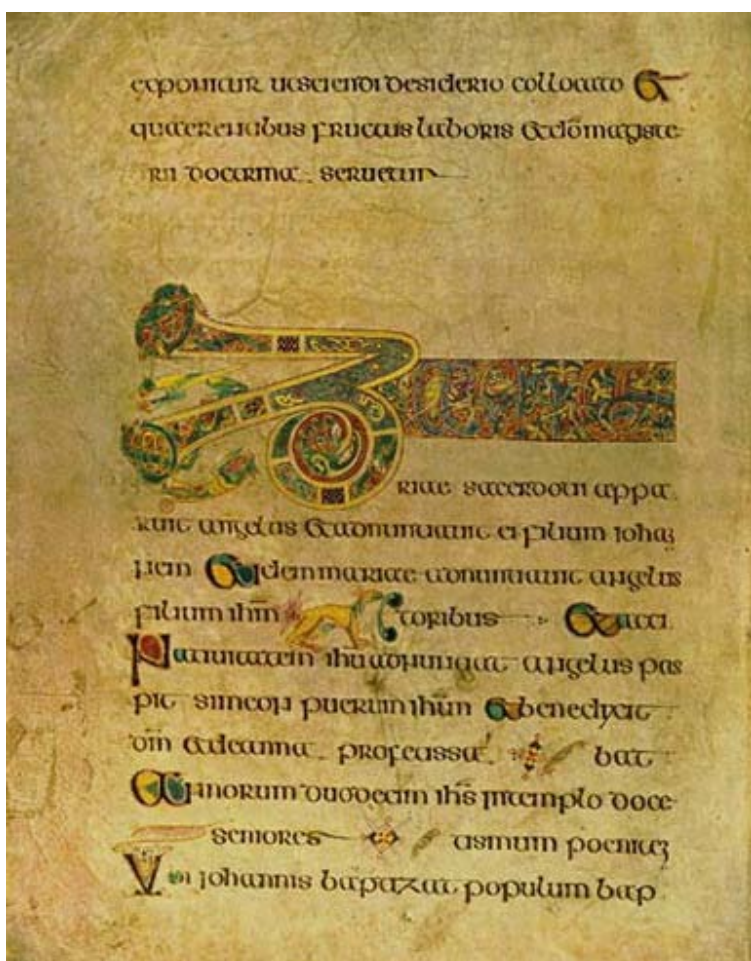 exponitur utsciendi desiderio collocato Et
quaerentibus fructus laboris et domagiste
rii doctrina seruetur
Zacha
riae sacerdoti appa
ruit angelus et adnuntiauit ei filium iohan
nem Et idem mariae adnuntiauit angelus
filium ihm toribus Et acci
Natiuitatem ihu adnuntiat angelus pas
pit simeon puerum ihm et benedixit
dm et deanna profetissa bat
Annorum duodecim ihs intemplo doce
seniores tismum poeniten
Ubi iohannis baptizat populum bap